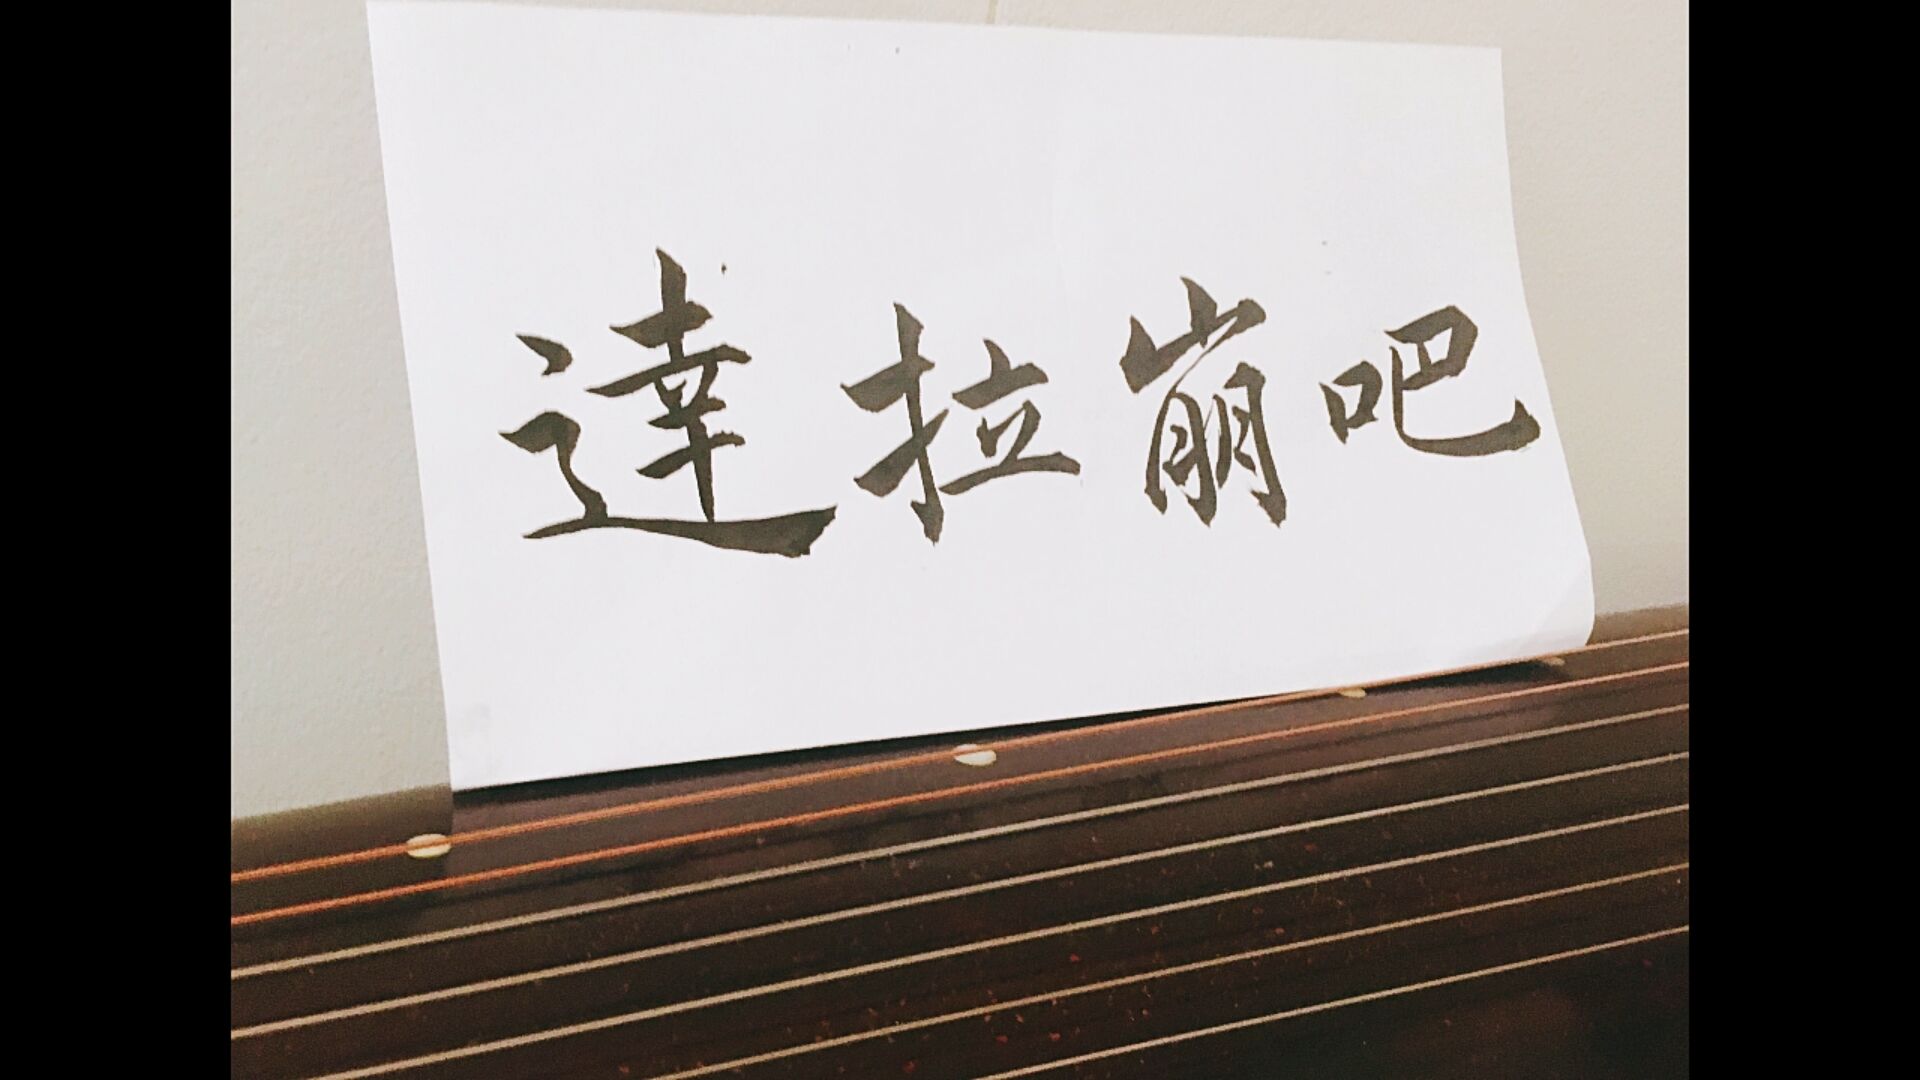 達拉崩吧